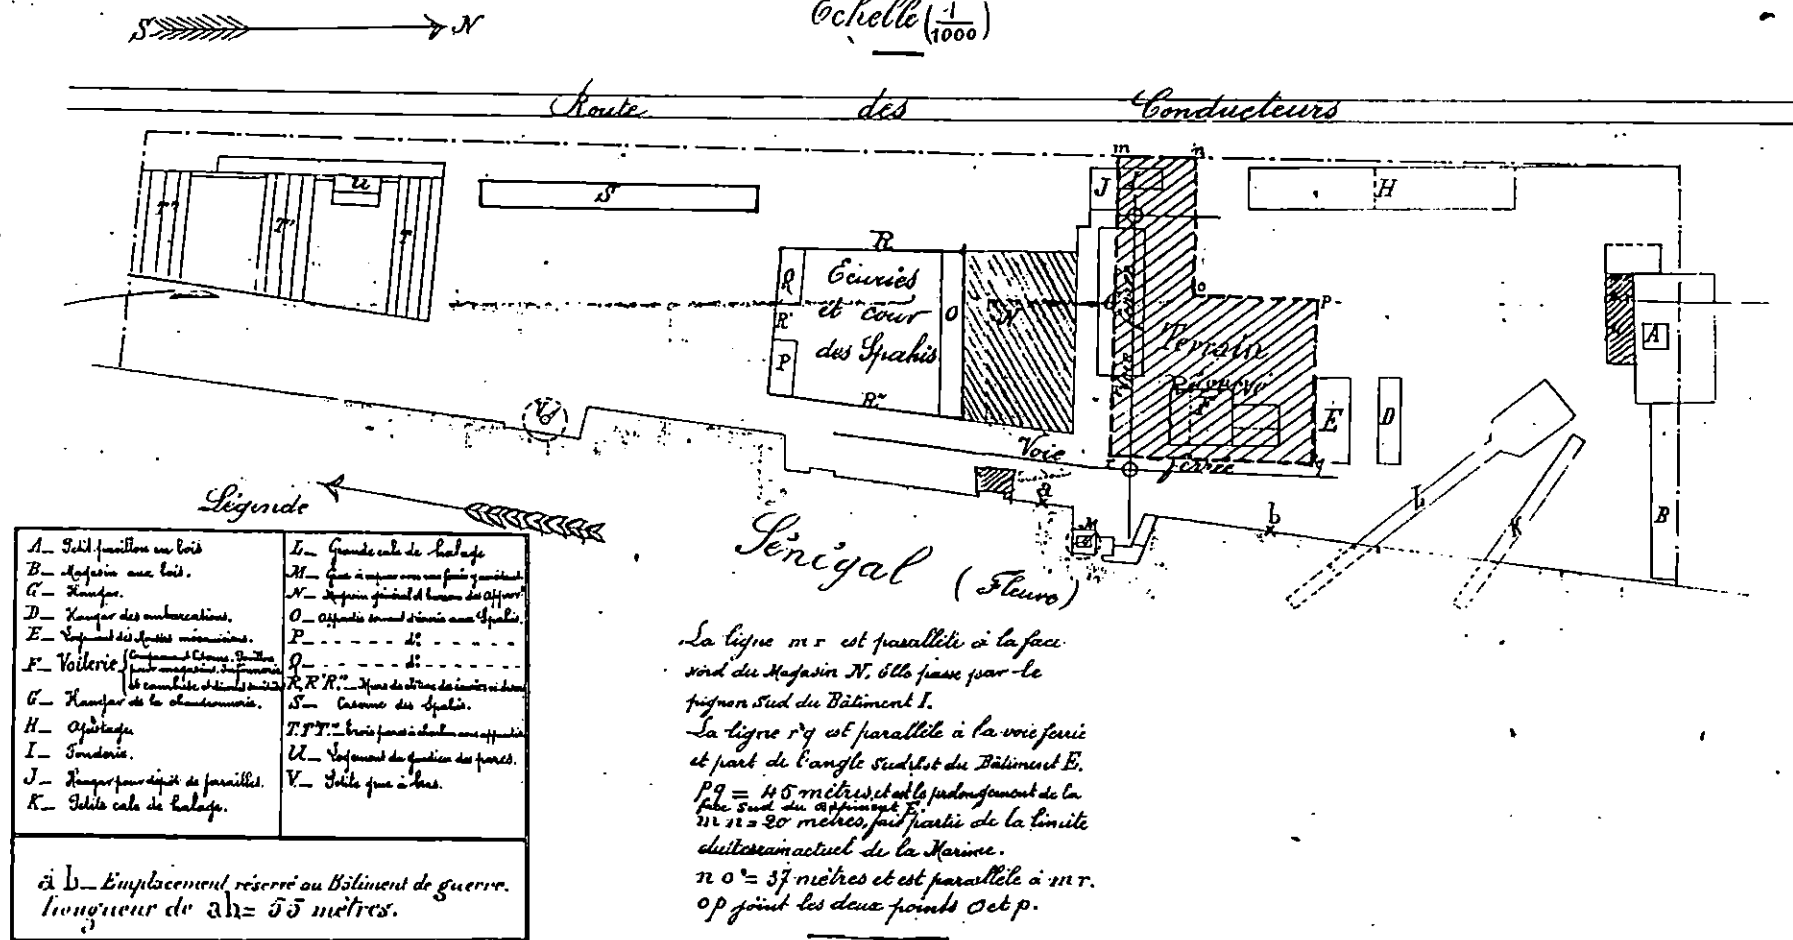 Echelle (1/1000)
S N
Route des Conducteurs
m n
T'' T' T U S J H
R
Q Ecuries
R' et cour O N
P des Spahis
R''
o P
Terrain
Réservé
F E D A
V
Voie ferrée
r q
a b L K B
M
Sénégal
(Fleuve)
Légende
A_ Petit pavillon en bois
B_ Magasin aux bois.
C_ Hangar.
D_ Hangar des embarcations.
E_ Logement des mécaniciens.
F_ Voilerie
G_ Hangar de la chaudronnerie.
H_ Ajustage
I_ Fonderie.
J_ Hangar pour dépôt de ferrailles.
K_ Petite cale de halage.
L_ Grande cale de halage
M_ Grue à vapeur
N_ Magasin général et bureau des
O_ Appentis servant d'écurie aux Spahis.
P_ - - - - - d°. - - - - -
Q_ - - - - - d°. - - - - -
R, R'R''_ Murs de clôture
S_ Caserne des Spahis.
T.T'T''_ trois parcs à charbon
U_ Logement du gardien des parcs.
V_ Petite grue à bras.
a b_ Emplacement réservé au Bâtiment de guerre.
Longueur de ab = 55 mètres.
La ligne m r est parallèle à la face
nord du Magasin N. Elle passe par le
pignon sud du Bâtiment I.
La ligne r q est parallèle à la voie ferrée
et part de l'angle Sud Est du Bâtiment E.
P q = 45 mètres, et est le prolongement de la
face Sud du Bâtiment E.
m n = 20 mètres, fait partie de la limite
du terrain actuel de la Marine.
n o = 37 mètres et est parallèle à m r.
o p joint les deux points o et p.